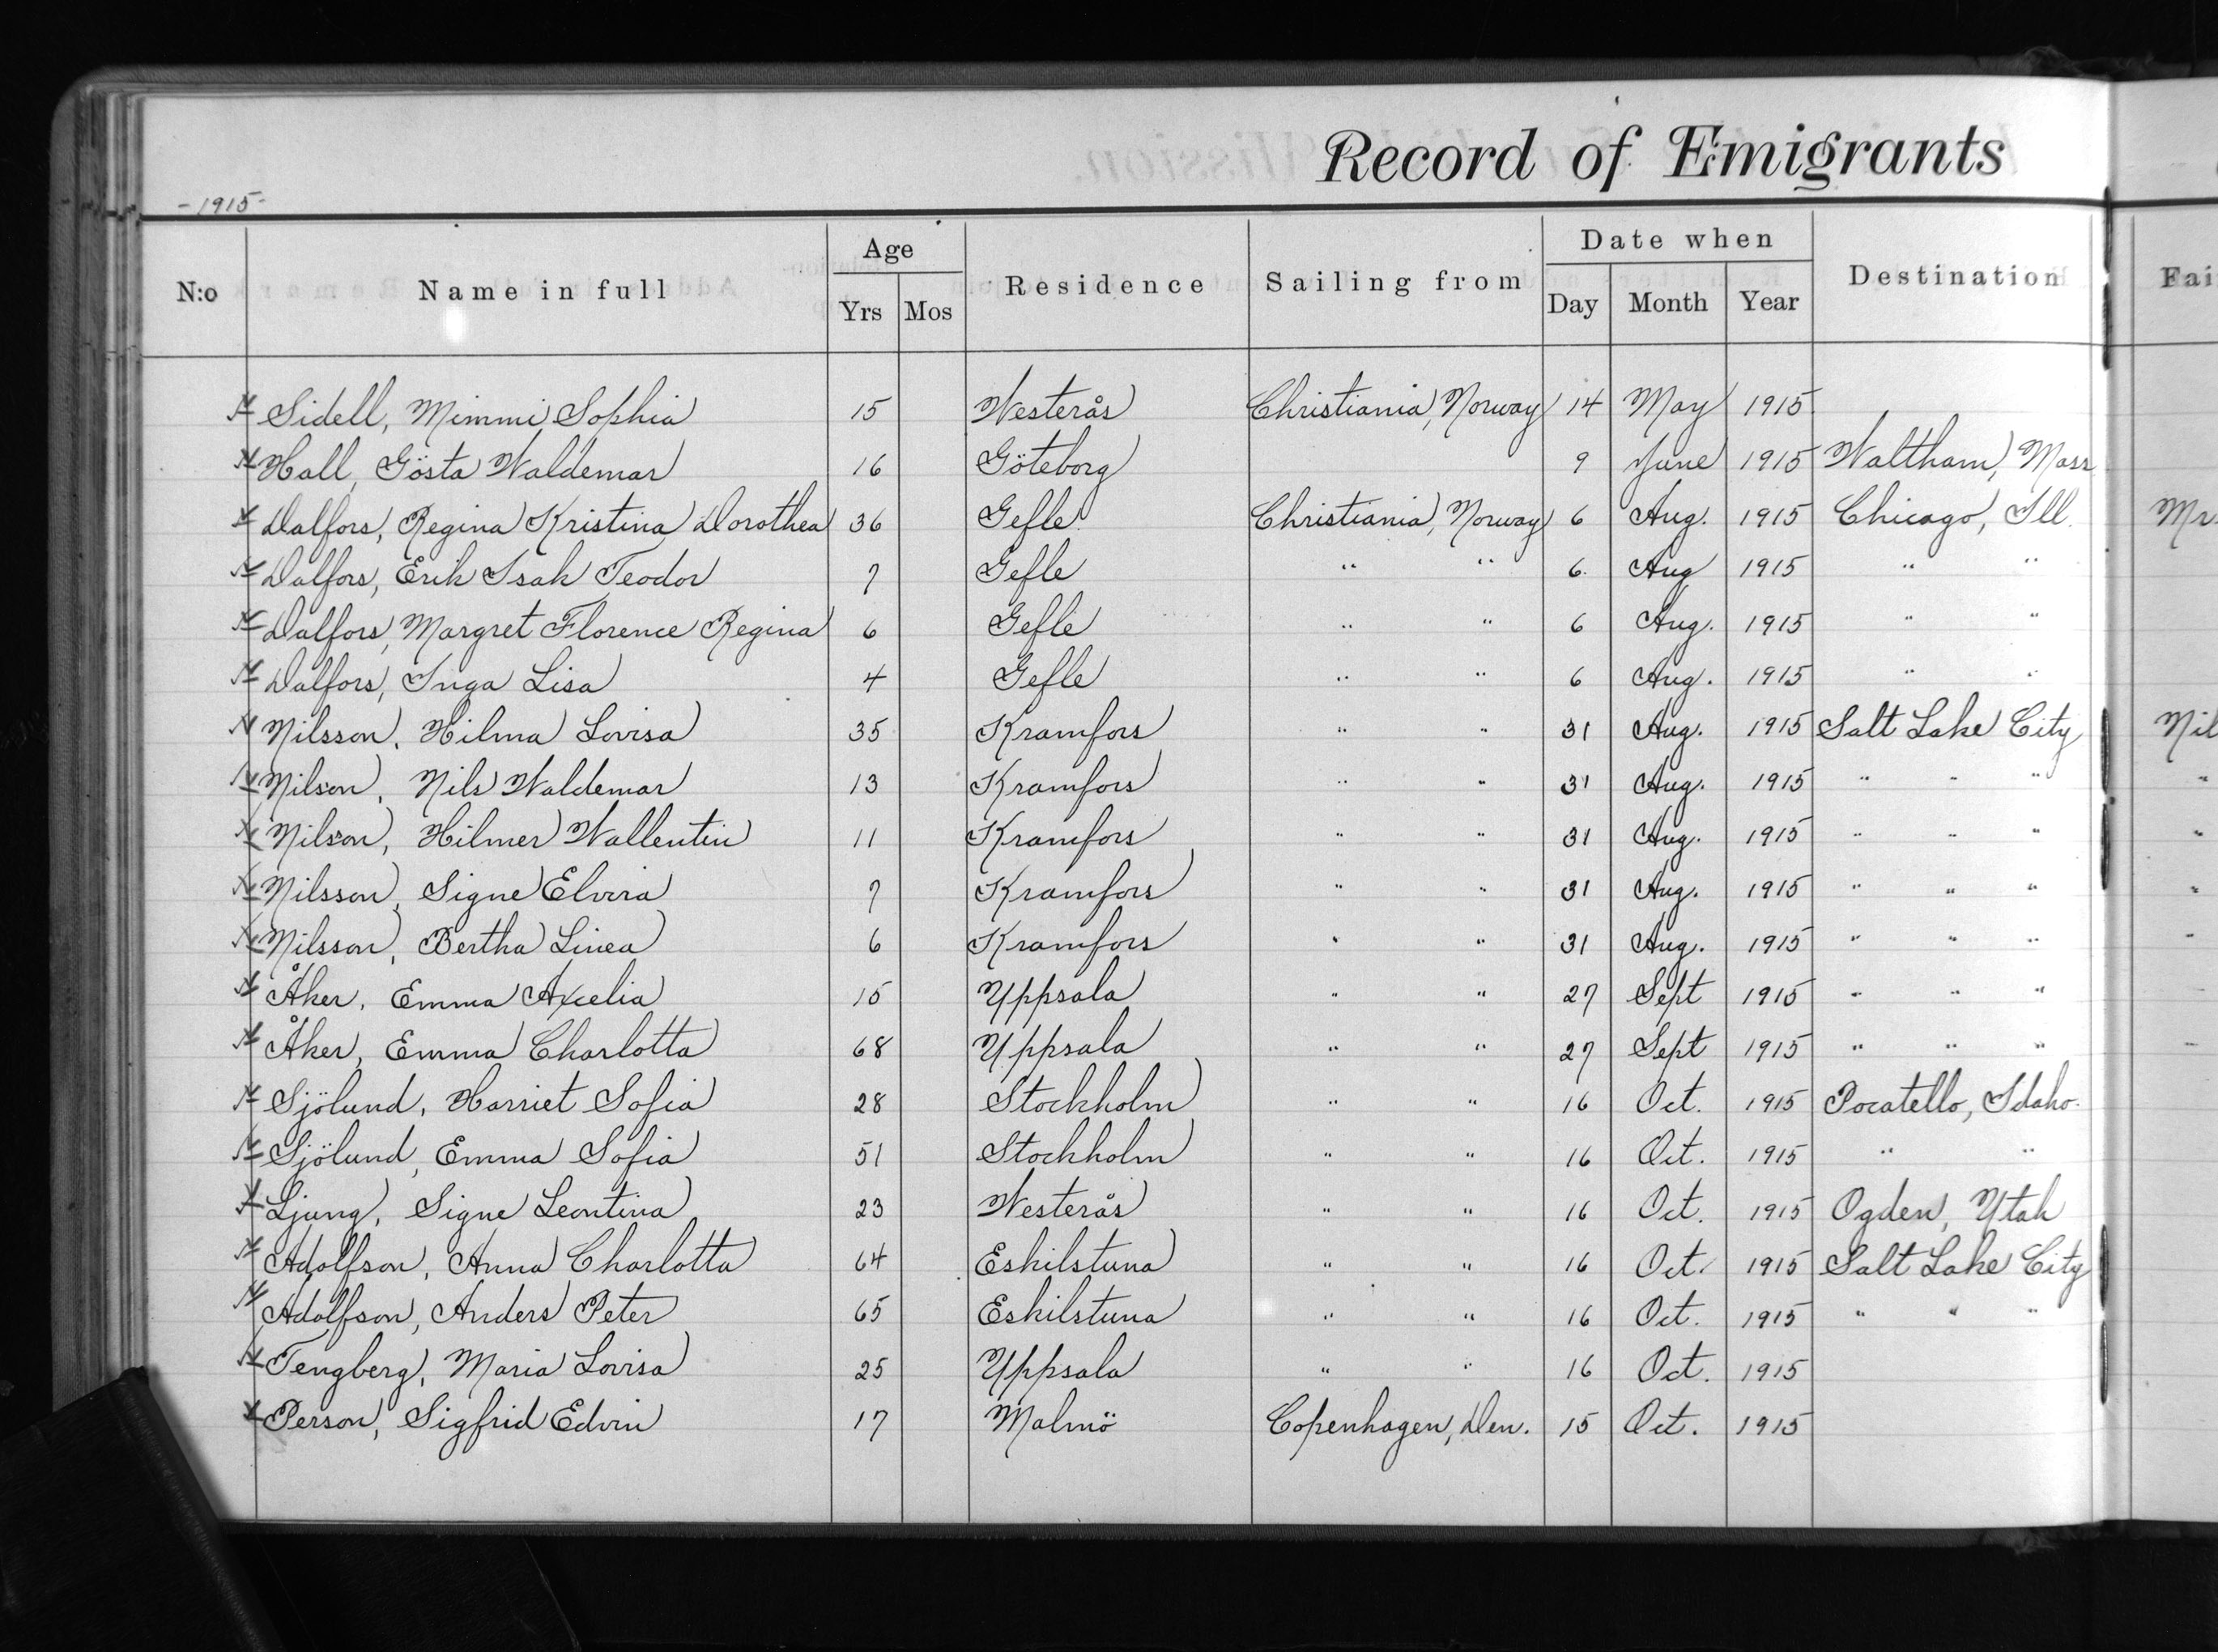 Record of Emigrants
-1915-
N:o Name in full Age Yrs Mos Residence Sailing from Date when Day Month Year Destination Fai
Sidell, Mimmi Sophia 15 Westerås Christiania, Norway 14 May 1915
Hall, Gösta Waldemar 16 Göteborg 9 June 1915 Waltham, Mass
Dalfors, Regina Kristina Dorothea 36 Gefle Christiania, Norway 6 Aug. 1915 Chicago, Ill. Mr.
Dalfors, Erik Isak Teodor 7 Gefle " " 6 Aug 1915 " "
Dalfors, Margret Florence Regina 6 Gefle " " 6 Aug. 1915 " "
Dalfors, Inga Lisa 4 Gefle " " 6 Aug. 1915 " "
Nilsson, Hilma Lovisa 35 Kramfors " " 31 Aug. 1915 Salt Lake City Nil
Nilson, Nils Waldemar 13 Kramfors " " 31 Aug. 1915 " " " "
Nilson, Hilmer Wallentin 11 Kramfors " " 31 Aug. 1915 " " " "
Nilsson, Signe Elvira 7 Kramfors " " 31 Aug. 1915 " " " "
Nilsson, Bertha Linea 6 Kramfors " " 31 Aug. 1915 " " " "
Åker, Emma Axelia 15 Uppsala " " 27 Sept 1915 " " "
Åker, Emma Charlotta 68 Uppsala " " 27 Sept 1915 " " " "
Sjölund, Harriet Sofia 28 Stockholm " " 16 Oct. 1915 Pocatello, Idaho.
Sjölund, Emma Sofia 51 Stockholm " " 16 Oct. 1915 " "
Ljung, Signe Leontina 23 Westerås " " 16 Oct. 1915 Ogden, Utah
Adolfson, Anna Charlotta 64 Eskilstuna " " 16 Oct. 1915 Salt Lake City
Adolfson, Anders Peter 65 Eskilstuna " " 16 Oct. 1915 " " "
Tengberg, Maria Lovisa 25 Uppsala " " 16 Oct. 1915
Person, Sigfrid Edvin 17 Malmö Copenhagen, Den. 15 Oct. 1915